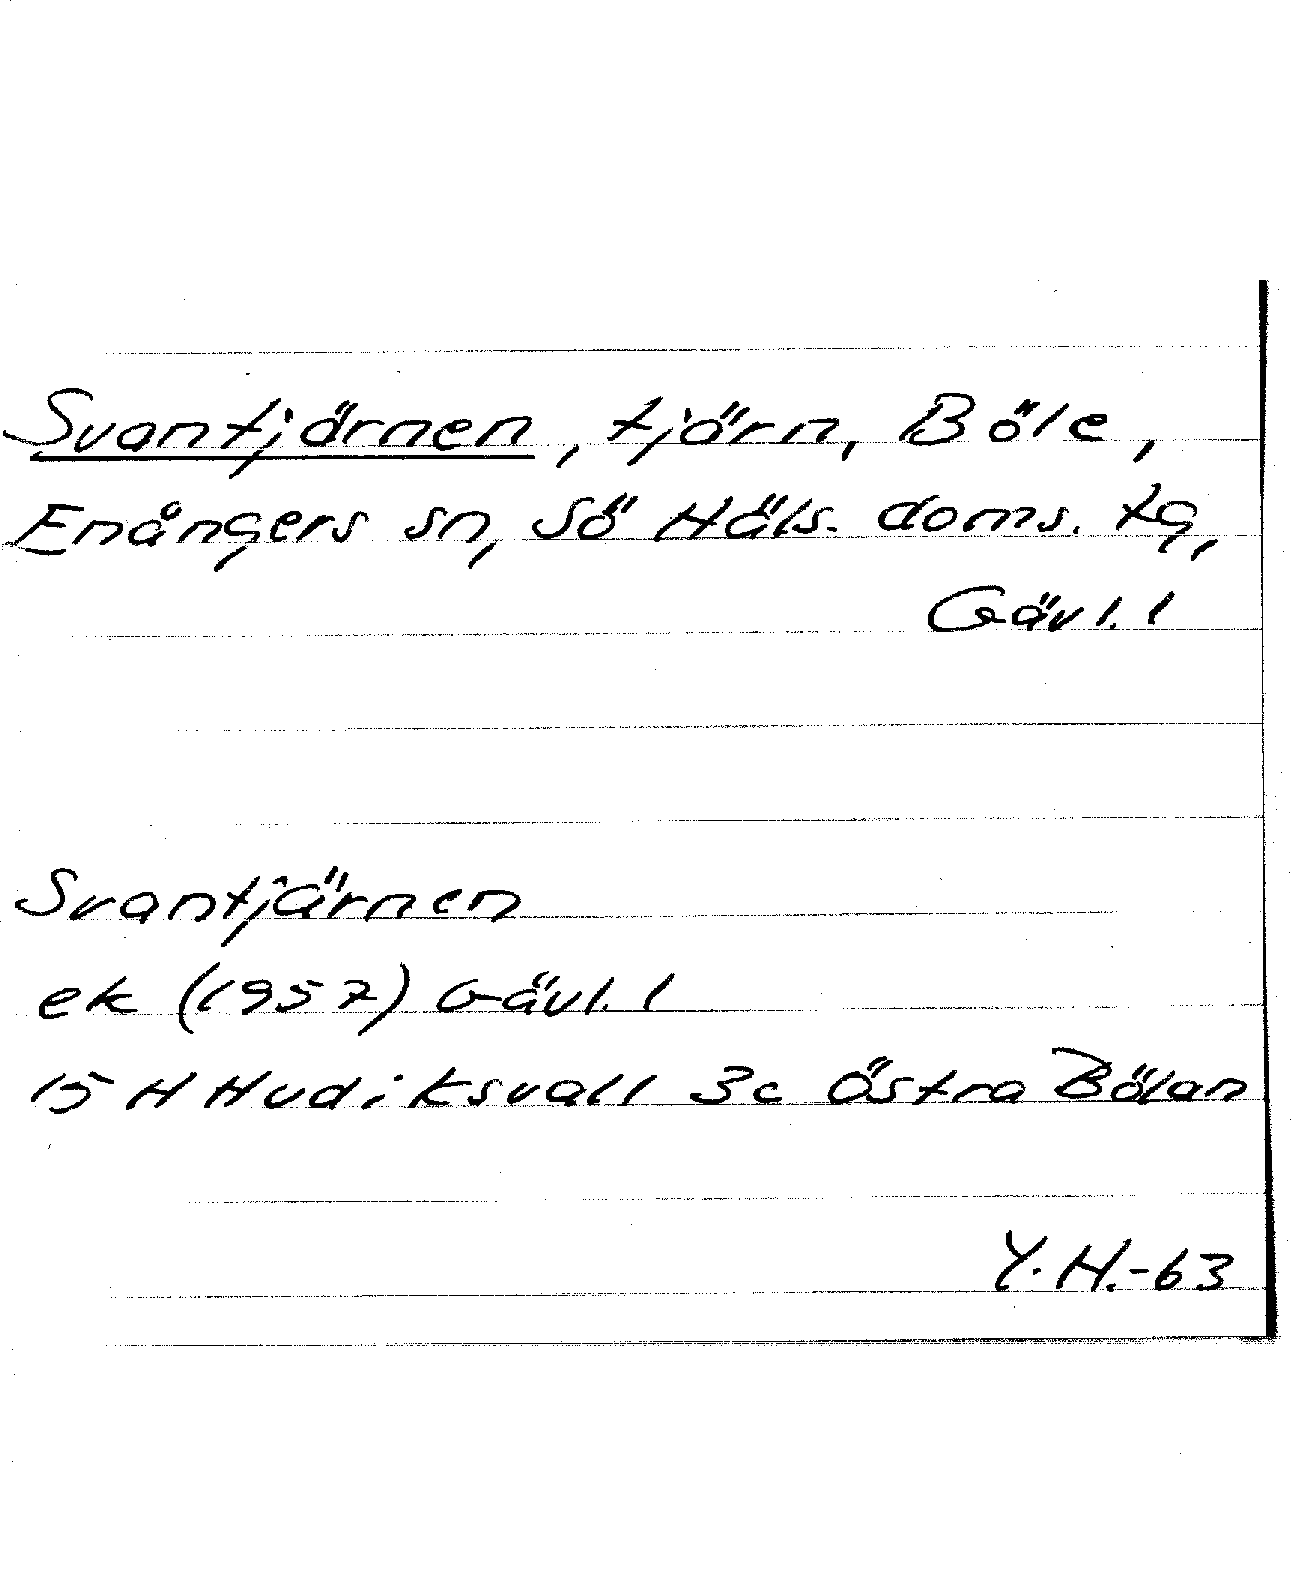 Svantjärnen, tjärn, Böle,
Enångers sn, Sö Häls. doms. tg,
Gävl. l
Svantjärnen
ek (1957) Gävl. l
15 H Hudiksvall 3c Östra Bölan
Y. H.-63